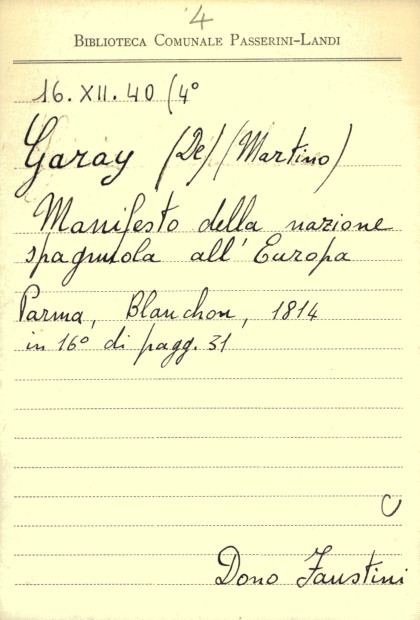 4
BIBLIOTECA COMUNALE PASSERINI-LANDI
16. XII. 40 (4°
Garay (De) (Martino)
Manifesto della nazione
spagnuola all' Europa
Parma, Blanchon, 1814
in 16° di pagg. 31
C
Dono Faustini